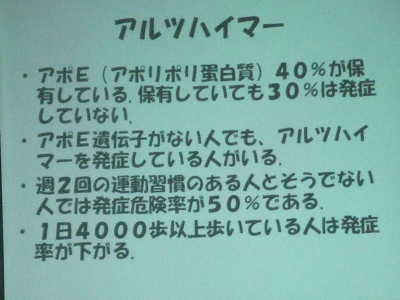 アルツハイマー
・アポE（アポリポリ蛋白質）40％が保
有している.保有していても30％は発症
していない.
・アポE遺伝子がない人でも、アルツハイ
マーを発症している人がいる.
・週2回の運動習慣のある人とそうでない
人では発症危険率が50％である.
・1日4000歩以上歩いている人は発症
率が下がる.